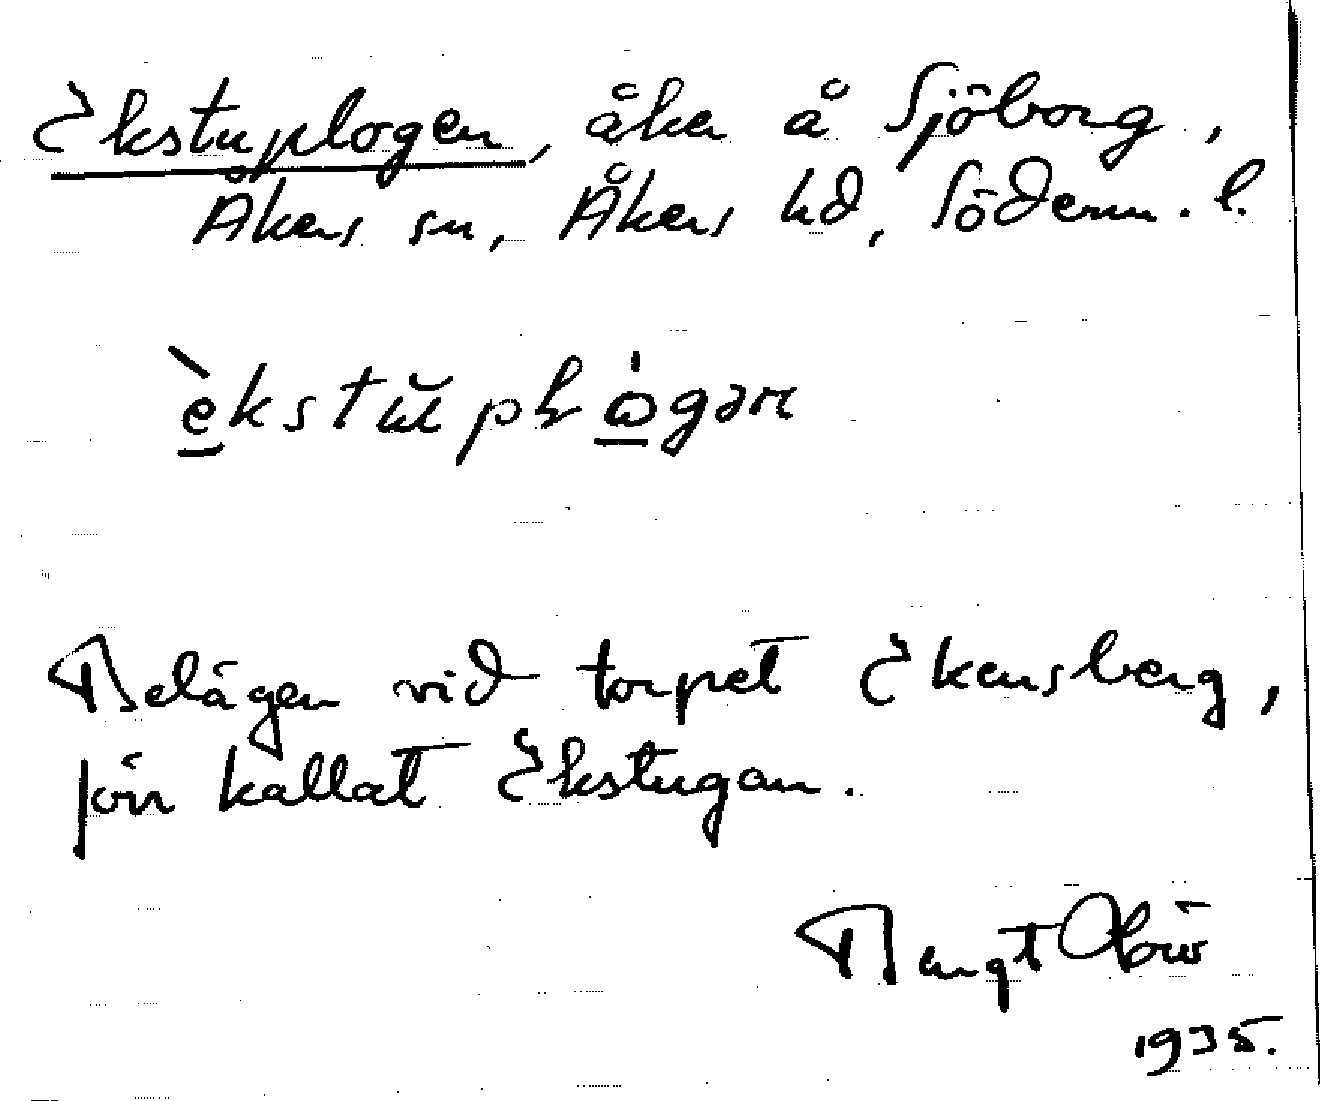 Ekstuplogen, åker å Sjöborg,
Åkers sn, Åkers hd, Söderm. l.
èkstŭpłògən
Belägen vid torpet Ekensberg,
förr kallat Ekstugan.
1935.